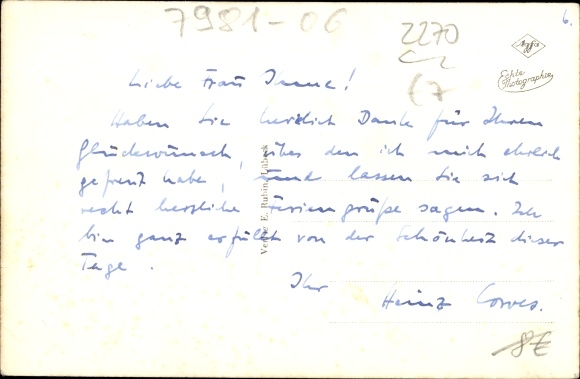 7981-06
2270
6.
Agfa
Echte
Photographie
Liebe Frau
Haben Sie herzlich Dank für Ihren
Glückwunsch, über den ich mich ehrlich
gefreut habe, und lassen Sie sich
recht herzliche Feriengrüße sagen. Ich
bin ganz erfüllt von der Schönheit dieser
Tage.
Ihr
Heinz
Verlag E. Rubin, Lübeck
8€